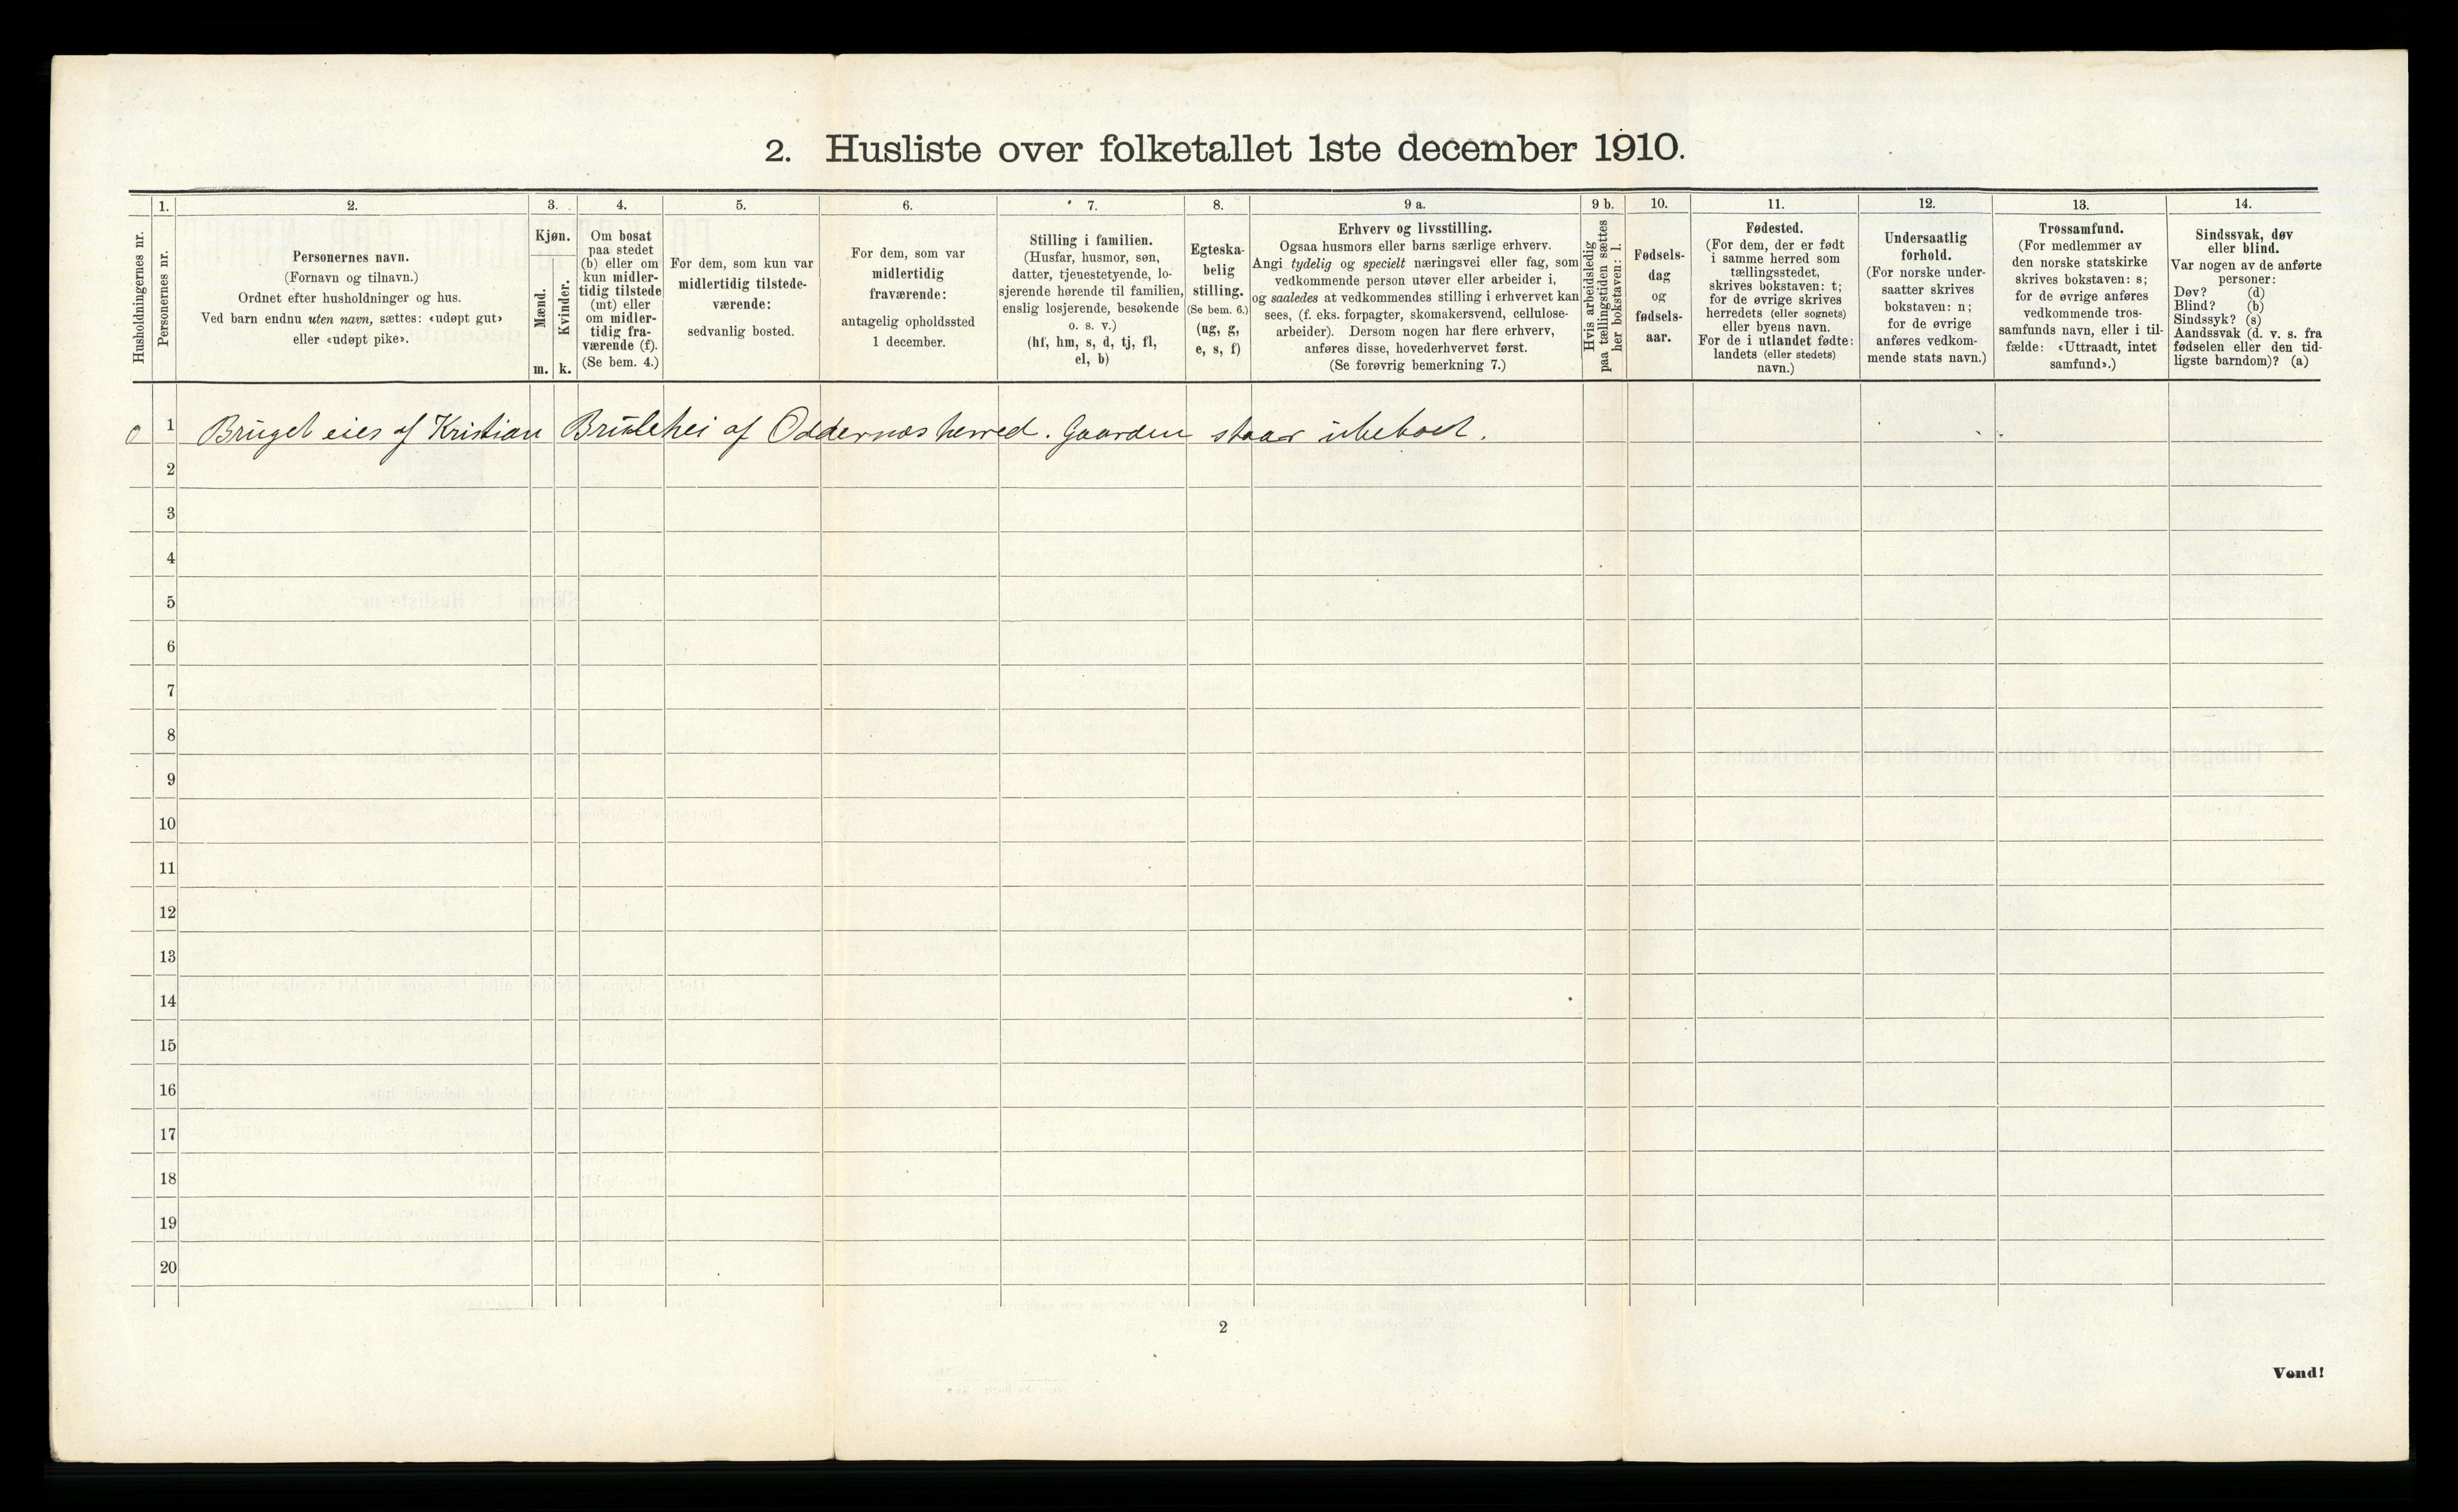 2. Husliste over folketallet 1ste december 1910.
Husholdningernes nr.
1.
Personernes nr.
2.
Personernes navn.
(Fornavn og tilnavn.)
Ordnet efter husholdninger og hus.
Ved barn endnu uten navn, sættes: «udøpt gut»
eller «udøpt pike».
3.
Kjøn.
Mænd.
Kvinder.
m.
k.
4.
Om bosat
paa stedet
(b) eller om
kun midler-
tidig tilstede
(mt) eller
om midler-
tidig fra-
værende (f).
(Se bem. 4.)
5.
For dem, som kun var
midlertidig tilstede-
værende:
sedvanlig bosted.
6.
For dem, som var
midlertidig
fraværende:
antagelig opholdssted
1 december.
7.
Stilling i familien.
(Husfar, husmor, søn,
datter, tjenestetyende, lo-
sjerende hørende til familien,
enslig losjerende, besøkende
o. s. v.)
(hf, hm, s, d, tj, fl,
el, b)
8.
Egteska-
belig
stilling.
(Se bem. 6.)
(ug, g,
e, s, f)
9 a.
Erhverv og livsstilling.
Ogsaa husmors eller barns særlige erhverv.
Angi tydelig og specielt næringsvei eller fag, som
vedkommende person utøver eller arbeider i,
og saaledes at vedkommendes stilling i erhvervet kan
sees, (f. eks. forpagter, skomakersvend, cellulose-
arbeider). Dersom nogen har flere erhverv,
anføres disse, hovederhvervet først.
(Se forøvrig bemerkning 7.)
9 b.
Hvis arbeidsledig
paa tællingstiden sættes
her bokstaven: l.
10.
Fødsels-
dag
og
fødsels-
aar.
11.
Fødested.
(For dem, der er født
i samme herred som
tællingsstedet,
skrives bokstaven: t;
for de øvrige skrives
herredets (eller sognets)
eller byens navn.
For de i utlandet fødte:
landets (eller stedets)
navn.)
12.
Undersaatlig
forhold.
(For norske under-
saatter skrives
bokstaven: n;
for de øvrige
anføres vedkom-
mende stats navn.)
13.
Trossamfund.
(For medlemmer av
den norske statskirke
skrives bokstaven: s;
for de øvrige anføres
vedkommende tros-
samfunds navn, eller i til-
fælde: «Uttraadt, intet
samfund».)
14.
Sindssvak, døv
eller blind.
Var nogen av de anførte
personer:
Døv? (d)
Blind? (b)
Sindssyk? (s)
Aandssvak (d. v. s. fra
fødselen eller den tid-
ligste barndom)? (a)
0 1 Bruget eies af Kristian af Oddernes herred. Gaarden staar ubeboet.
2
3
4
5
6
7
8
9
10
11
12
13
14
15
16
17
18
19
20
2
Vend!